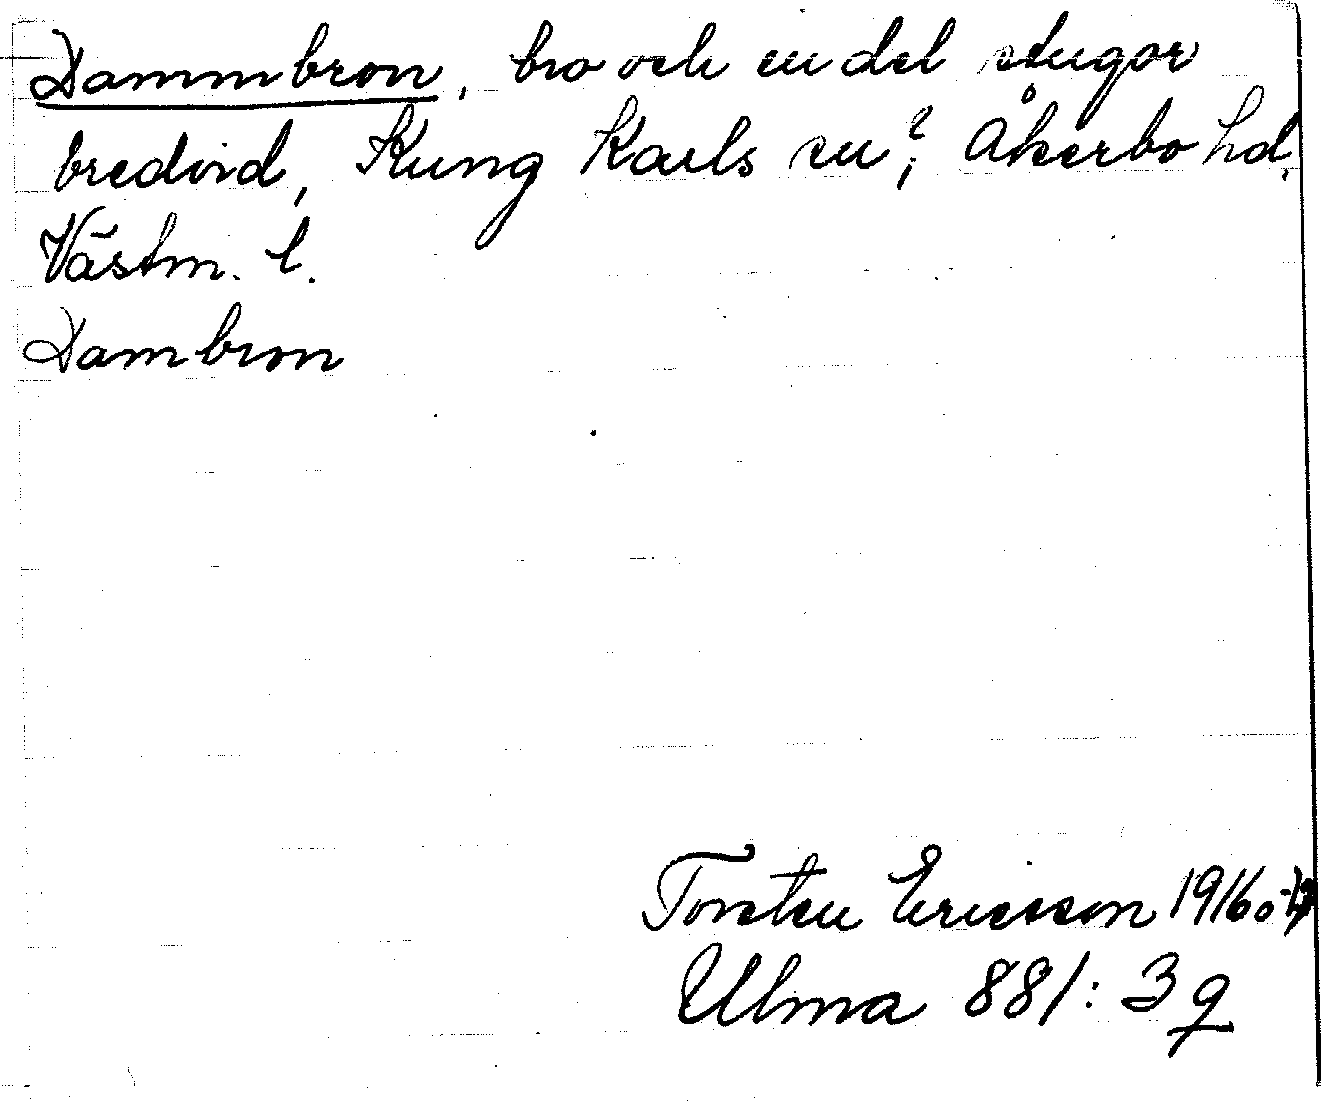 Dammbron, bro och en del stugor
bredvid, Kung Karls sn?; Åkerbo hd,
Västm. l.
Dambron
Torsten Ericsson 1916 o. 17
Ulma 881:3 q